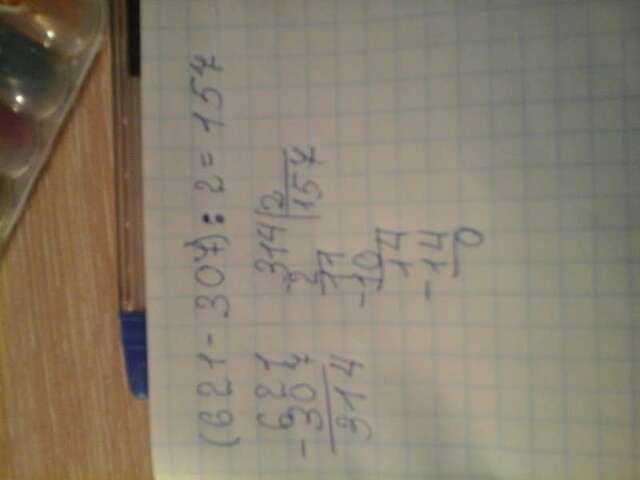 (621-307):2=157
-621
307
314
-314|2
2 |157
11
-10
14
-14
0